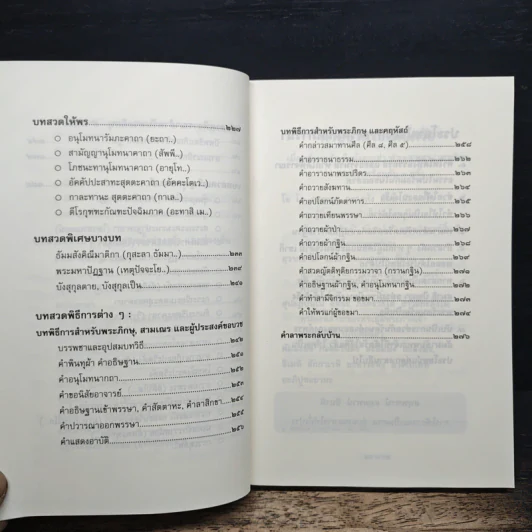 บทสวดให้พร........๒๒๗
○ อนุโมทนารัมภะคาถา (ยะถา..)
○ สามัญญานุโมทนาคาถา (สัพพี..)
○ โภชะนะทานุโมทนาคาถา (อายุโท..)
○ อัคคัปปะสาทะสุตตะคาถา (อัคคะโตเว..)
○ กาละทานะ สุตตะคาถา (กาเล..)
○ ติโรกุฑฑะกัณฑะปัจฉิมภาค (อะทาสิ เม..)
บทสวดพิเศษบางบท
ธัมมสังคิณีมาติกา (กุสะลา ธัมมา..)........๒๓๓
พระมหาปัฏฐาน (เหตุปัจจะโย..)........๒๓๙
บังสุกุลตาย, บังสุกุลเป็น........๒๔๐
บทสวดพิธีการต่าง ๆ :
บทพิธีการสำหรับพระภิกษุ, สามเณร และผู้ประสงค์ขอบวช
บรรพชาและอุปสมบทวิธี
คำพินทุผ้า คำอธิษฐาน
คำอนุโมทนากถา
คำขอนิสัยอาจารย์
คำอธิษฐานเข้าพรรษา, คำสัตตาหะ, คำลาสิกขา
คำปวารณาออกพรรษา
คำแสดงอาบัติ
บทพิธีการสำหรับพระภิกษุ และคฤหัสถ์
คำกล่าวสมาทานศีล (ศีล ๘, ศีล ๕)........๒๕๘
คำอาราธนาธรรม........๒๖๒
คำอาราธนาพระปริตร........๒๖๓
คำถวายสังฆทาน........๒๖๔
คำอปโลกน์ภัตตาหาร........๒๖๕
คำถวายเทียนพรรษา........๒๖๖
คำถวายผ้าป่า........๒๖๗
คำถวายผ้ากฐิน........๒๖๘
คำอปโลกน์ผ้ากฐิน........๒๖๙
คำสวดญัตติทุติยกรรมวาจา (กรานกฐิน)........๒๗๑
คำอธิษฐานผ้ากฐิน, คำอนุโมทนากฐิน........๒๗๒
คำทำสามีจิกรรม ขอขมา........๒๗๓
คำให้พรแก่ผู้ขอขมา........๒๗๔
คำลาพระกลับบ้าน........๒๗๖